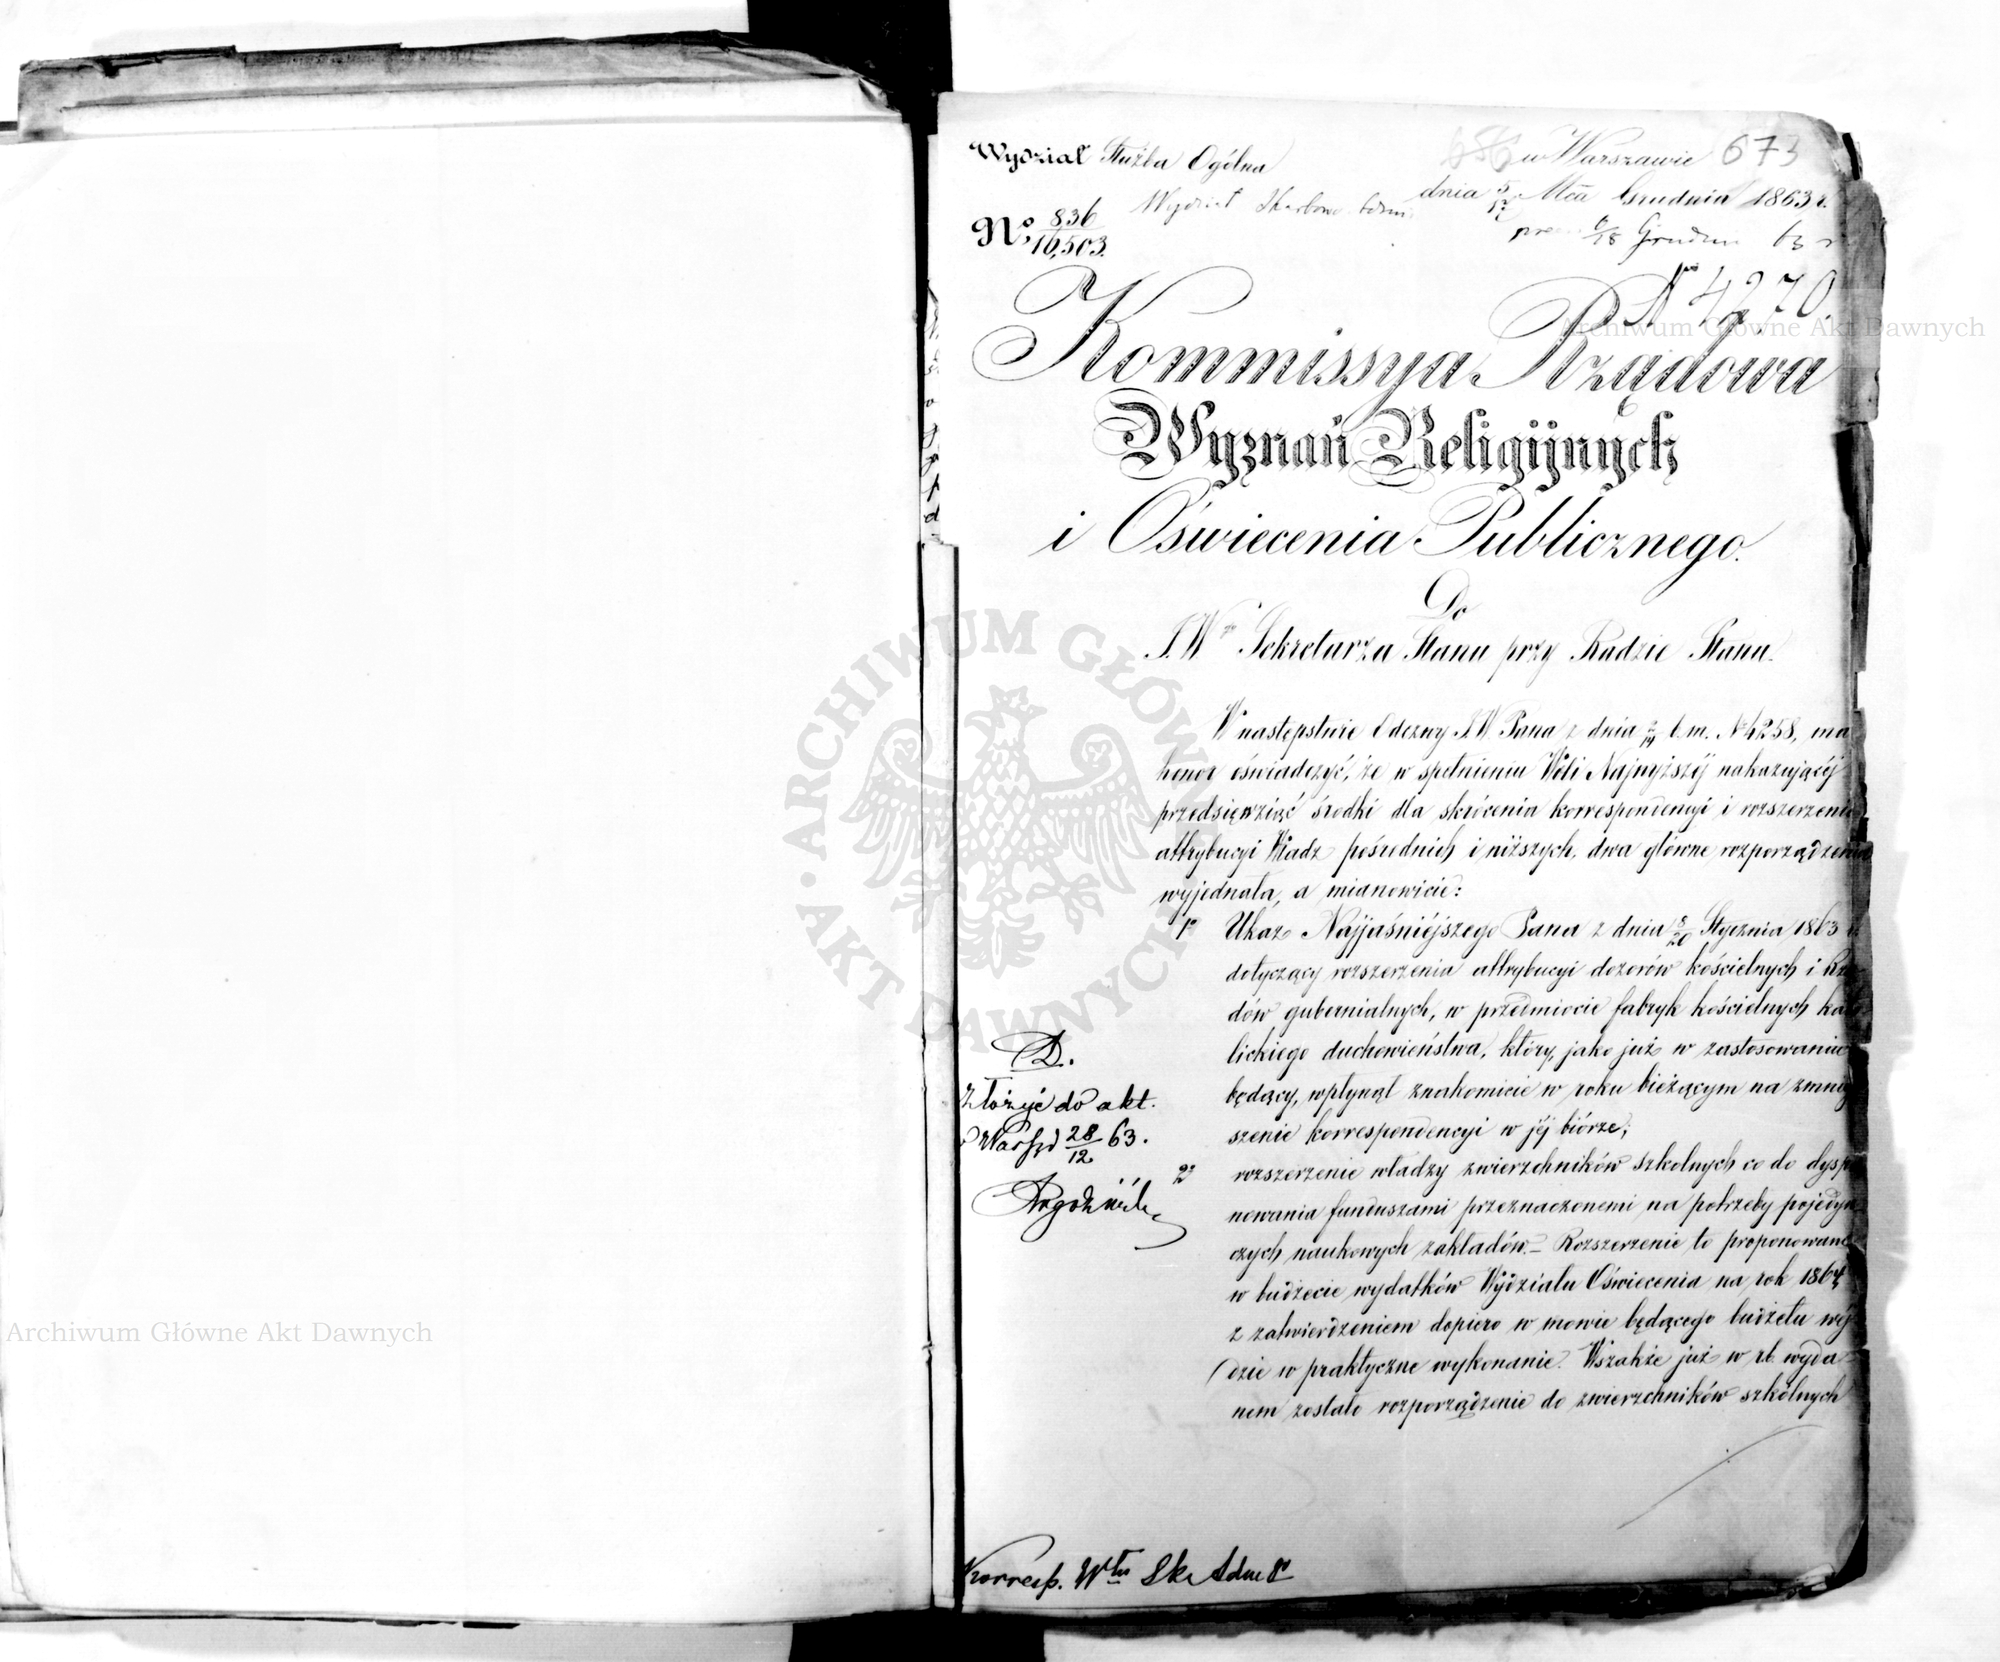 Wydział Służba Ogólna
w Warszawie 673
dnia 5/17 Mca Grudnia 1863 r.
Wydział Skarbowo
6/18 Grudnia 63 r
No 836/16,503.
No 4270.
Kommissya Rządowa
Wyznań Religijnych
i Oświecenia Publicznego.
Do
J.W. Sekretarza Stanu przy Radzie Stanu.
W następstwie Odezwy J W Pana z dnia 2/14 b. m. No 4258, ma
honor oświadczyć, że w spełnieniu Woli Najwyższéj nakazującéj
przedsięwziąć środki dla skrócenia korrespondencyi i rozszerzenia
attrybucyi Władz pośrednich i niższych, dwa główne rozporządzenia
wyjednała, a mianowicie:
1o Ukaz Najjaśniéjszego Pana z dnia 8/20 Stycznia 1863 r.
dotyczący rozszerzenia attrybucyi dozorów kościelnych i Rzą-
dów gubernialnych, w przedmiocie fabryk kościelnych kato-
lickiego duchowieństwa, który, jako już w zastosowaniu
będący, wpłynął znakomicie w roku bieżącym na zmniej-
szenie korrespondencyi w jéj biórze;
2o rozszerzenie władzy zwierzchników szkolnych co do dyspo-
nowania funduszami przeznaczonemi na potrzeby pojedyn-
czych naukowych zakładów. – Rozszerzenie to proponowane
w budżecie wydatków Wydziału Oświecenia na rok 1864
z zatwierdzeniem dopiero w mowie będącego budżetu wéj-
dzie w praktyczne wykonanie. Wszakże już w r.b. wyda-
nem zostało rozporządzenie do zwierzchników szkolnych
D.
Złożyć do akt.
28/12 63.
Korresp. Włu Sk Adm
Archiwum Główne Akt Dawnych
Archiwum Główne Akt Dawnych
ARCHIWUM GŁÓWNE AKT DAWNYCH